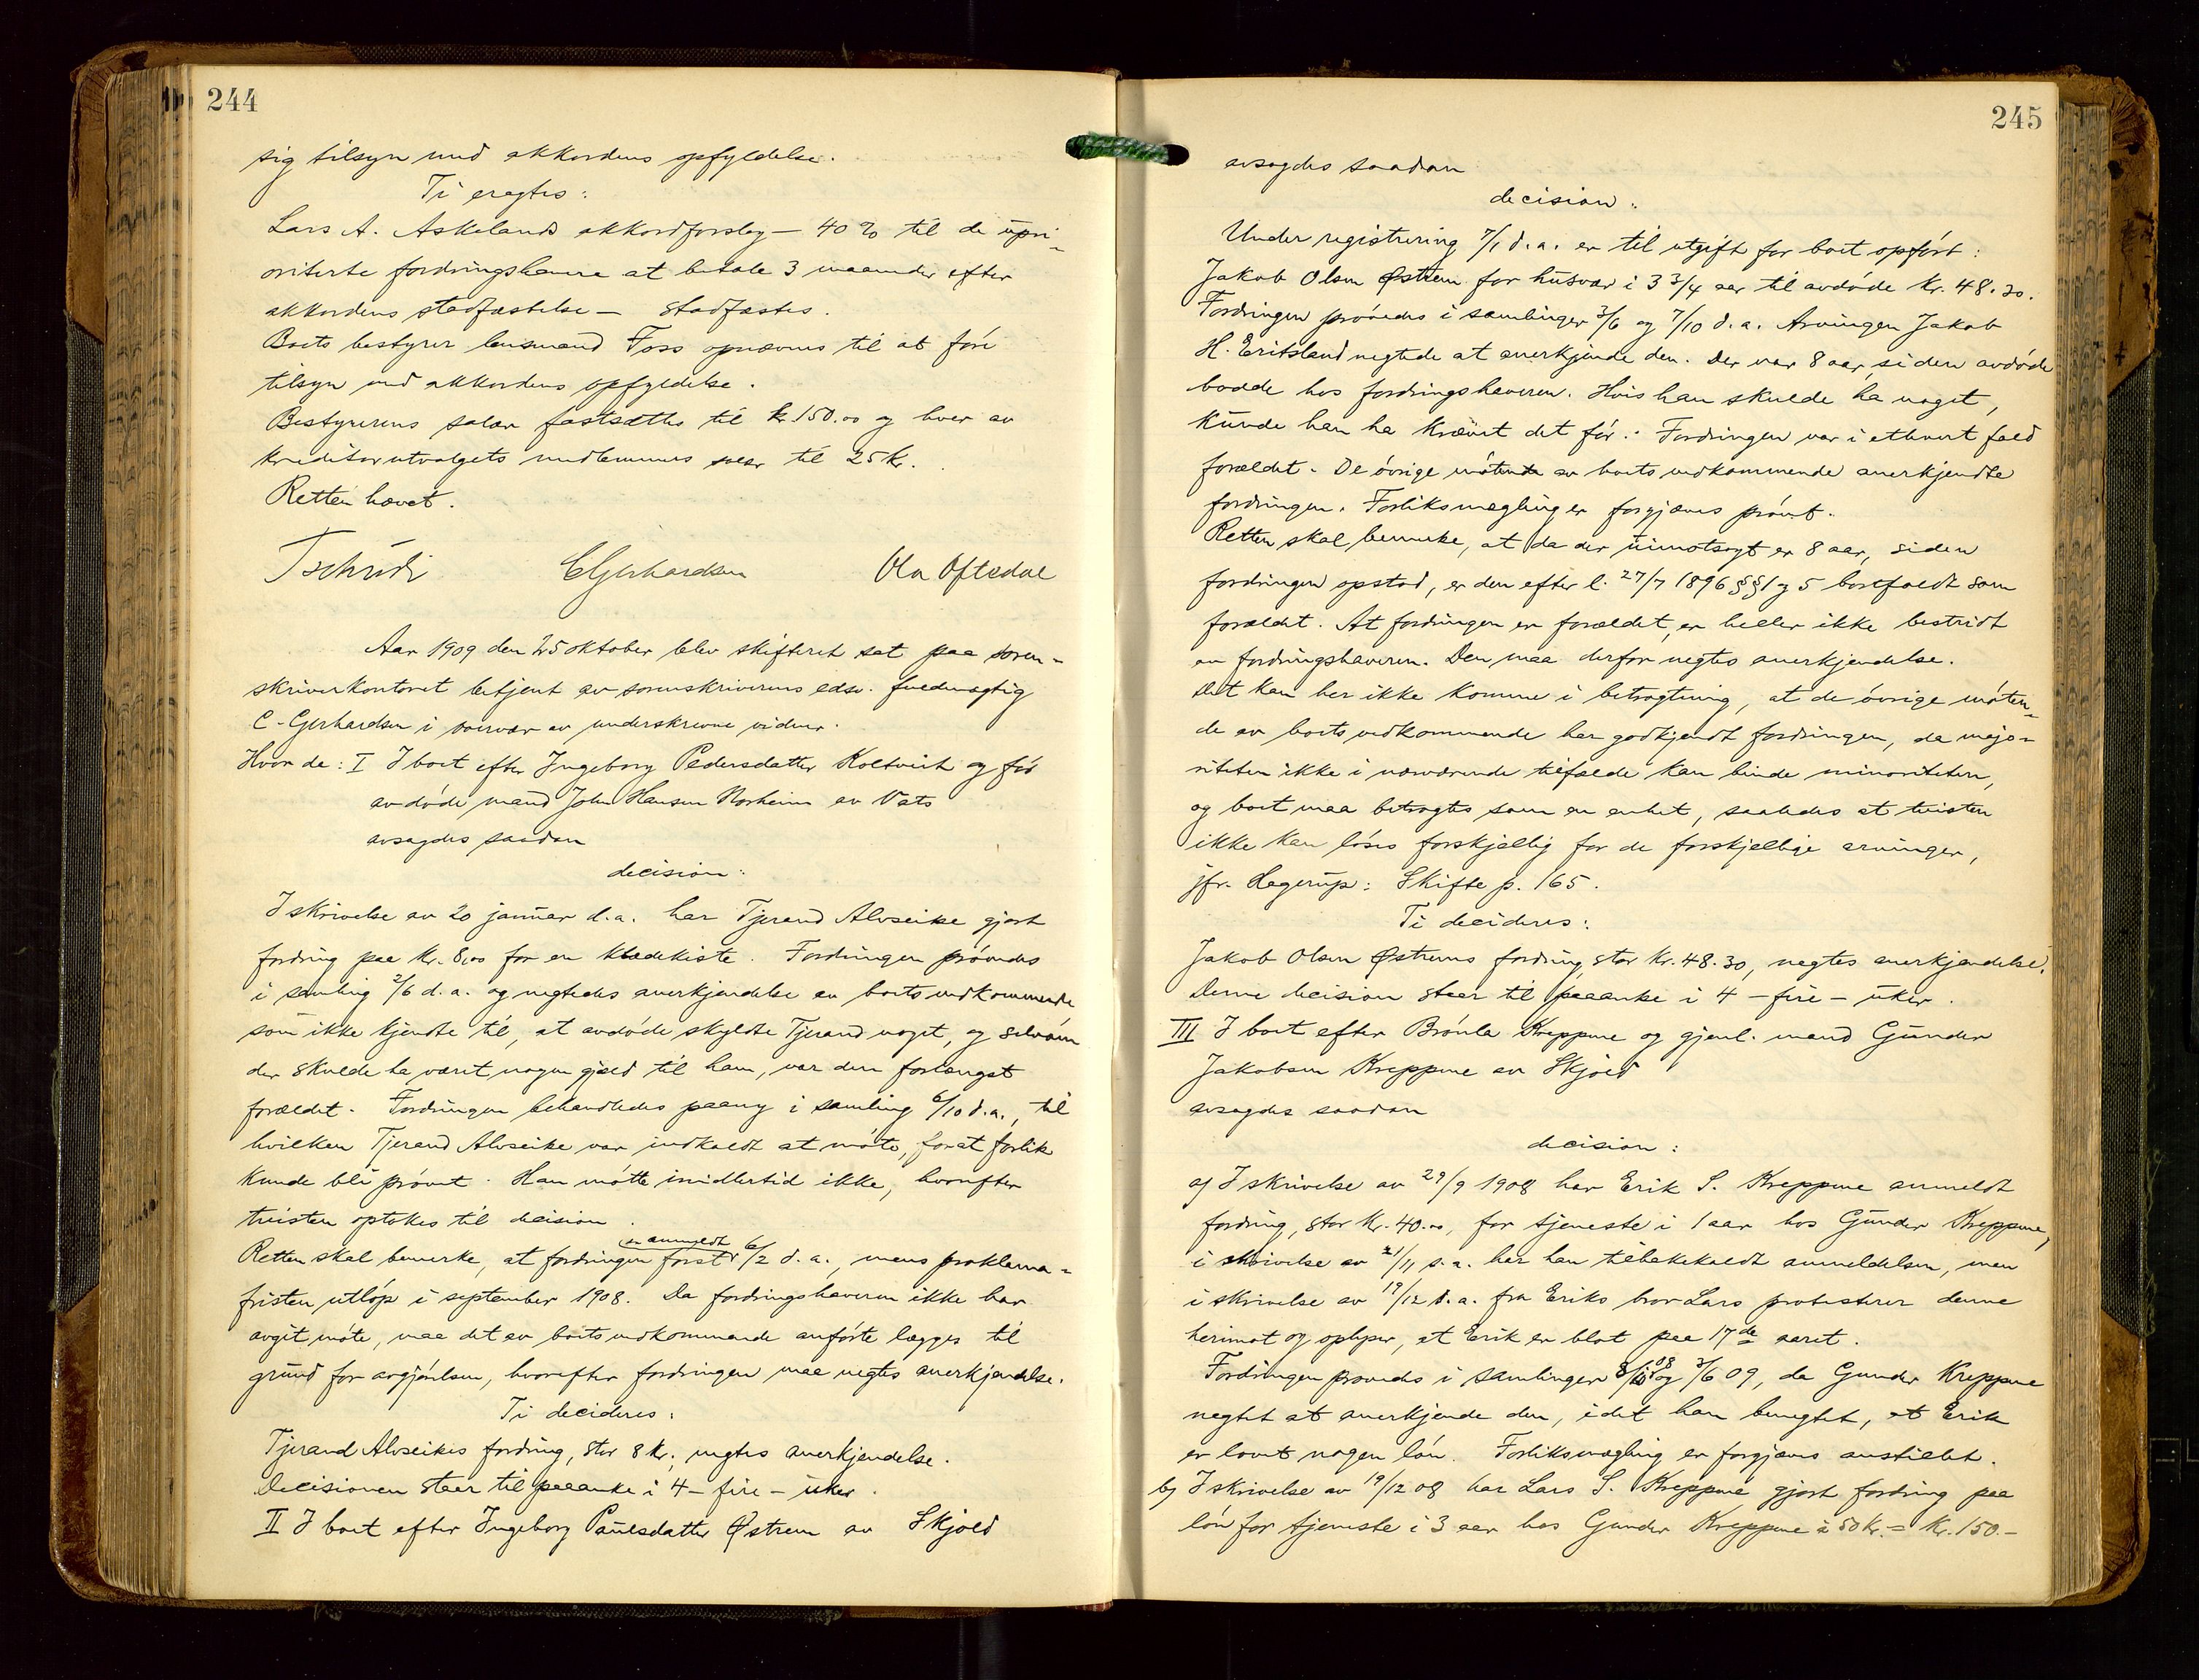 244
sig tilsyn med akkordens opfyldelse.
Ti eragtes:
Lars A. Askelands akkordforslag – 40 % til de upri-
oriterte fordringshavere at betale 3 maaneder efter
akkordens stadfæstelse – stadfæstes.
Boets bestyrer lensmand Foss opnævnes til at føre
tilsyn med akkordens opfyldelse.
Bestyrerens salær fastsættes til kr. 150.00 og hver av
kreditorutvalgets medlemmers salær til 25 kr.
Retten hævet.
Tschudi CGerhardsen Ola Oftedal
Aar 1909 den 25 oktober blev skifteret sat paa soren-
skriverkontoret betjent av sorenskriverens edsv. fuldmægtig
C. Gerhardsen i nærvær av underskrevne vidner.
Hvorda: I I boet efter Ingeborg Pedersdatter Koltveit og før
avdøde mand John Hansen Norheim av Vats
avsagdes saadan
decision:
I skrivelse av 20 januar d.a. har Tjerand Alvseike gjort
fordring paa kr. 8,00 for en klædekiste. Fordringen prøvedes
i samling 2/6 d.a. og negtedes anerkjendelse av boets vedkommende
som ikke kjendte til, at avdøde skyldte Tjerand noget, og selvom
der skulde ha været nogen gjæld til ham, var den forlængst
forældet. Fordringen behandledes paany i samling 6/10 d.a., til
hvilken Tjerand Alvseike var indkaldt at møte, forat forlik
kunde bli prøvet. Han møtte imidlertid ikke, hvorefter
tvisten optokes til decision.
Retten skal bemerke, at fordringen først er anmeldt 6/2 d.a., mens proklama-
fristen utløp i september 1908. Da fordringshaveren ikke har
avgit møte, maa det av boets vedkommende anførte lægges til
grund for avgjørelsen, hvorefter fordringen maa negtes anerkjendelse.
Ti decideres:
Tjerand Alvseikes fordring, stor 8 kr., negtes anerkjendelse.
Decisionen staar til paaanke i 4 – fire – uker.
II I boet efter Ingeborg Paulsdatter Østrem av Skjold
245
avsagdes saadan
decision:
Under registrering 7/1 d.a. er til utgift for boet opført:
Jakob Olsen Østrem for husvær i 3 3/4 aar til avdøde kr. 48.30.
Fordringen prøvedes i samlinger 3/6 og 7/10 d.a. Arvingen Jakob
H. Eritsland negtede at anerkjende den. Der var 8 aar, siden avdøde
bodde hos fordringshaveren. Hvis han skulde ha noget,
kunde han ha krævet det før. Fordringen var i ethvert fald
forældet. De øvrige møtende av boets vedkommende anerkjendte
fordringen. Forliksmegling er forgjæves prøvet.
Retten skal bemerke, at da der uimotsagt er 8 aar, siden
fordringen opstod, er den efter l. 27/7 1896 §§ 1 og 5 bortfaldt som
forældet. At fordringen er forældet, er heller ikke bestridt
av fordringshaveren. Den maa derfor negtes anerkjendelse.
Det kan her ikke komme i betragtning, at de øvrige møten-
de av boets vedkommende har godkjendt fordringen, da majo-
riteten ikke i nærværende tilfælde kan binde minoriteten,
og boet maa betragtes som en enhet, saaledes at tvisten
ikke kan løses forskjellig for de forskjellige arvinger,
jfr. Hagerup: Skifte p. 165.
Ti decideres:
Jakob Olsen Østrems fordring, stor kr. 48.30, negtes anerkjendelse.
Denne decision staar til paaanke i 4 – fire – uker.
III I boet efter Brønla Kreppene og gjenl. mand Gunder
Jakobsen Kreppene av Skjold
avsagdes saadan
decision:
a) I skrivelse av 29/9 1908 har Erik S. Kreppene anmeldt
fordring, stor kr. 40.00, for tjeneste i 1 aar hos Gunder Kreppene,
i skrivelse av 21/11 s.a. har han tilbakekaldt anmeldelsen, men
i skrivelse av 19/12 d.a. fra Eriks bror Lars protesterer denne
herimot og oplyser, at Erik er blot paa 17de aaret.
Fordringen prøvedes i samlinger 8/10 08 og 3/6 09, da Gunder Kreppene
negtet at anerkjende den, idet han benegtet, at Erik
er lovet nogen løn. Forliksmegling er forgjæves anstillet.
b) I skrivelse av 19/12 08 har Lars S. Kreppene gjort fordring paa
løn for tjeneste i 3 aar hos Gunder Kreppene à 50 kr. = kr. 150.–